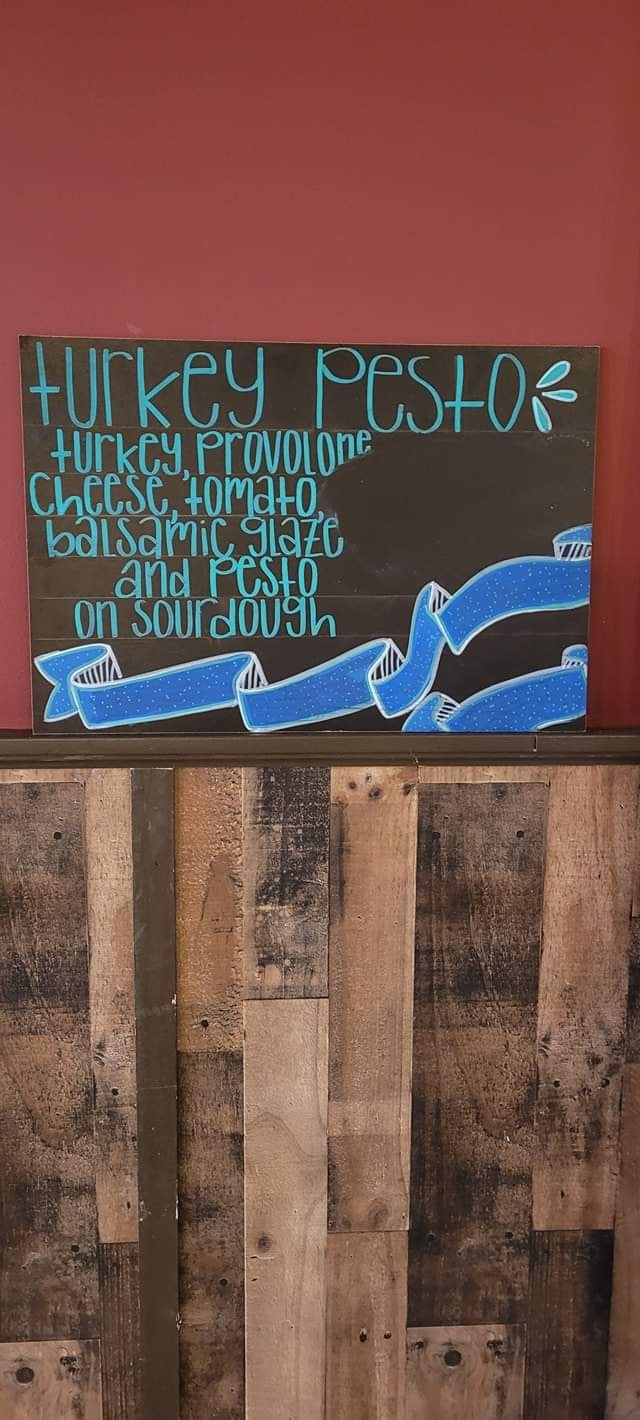 turkey pesto
turkey, provolone
cheese, tomato,
balsamic glaze
and pesto
on sourdough